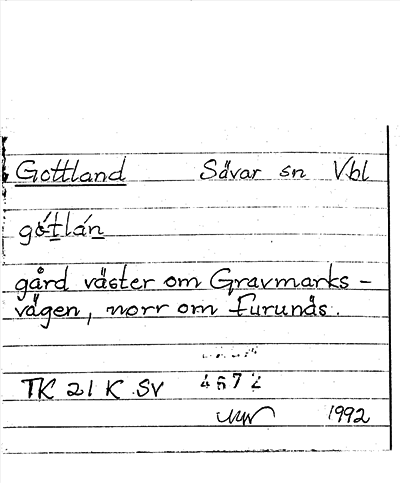 Gottland Sävar sn Vbl
gótlán
gård väster om Gravmarks-
vägen, norr om Furunäs.
TK 21 K SV 4672
1992